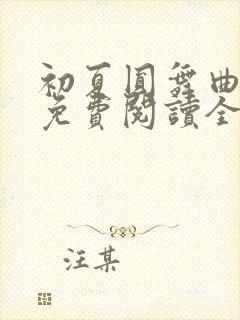 初夏圓舞曲
免費閱讀全
汪某